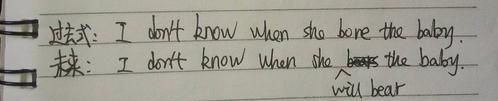 过去式: I don't know when she bore the baby.
未来: I don't know when she the baby.
will bear